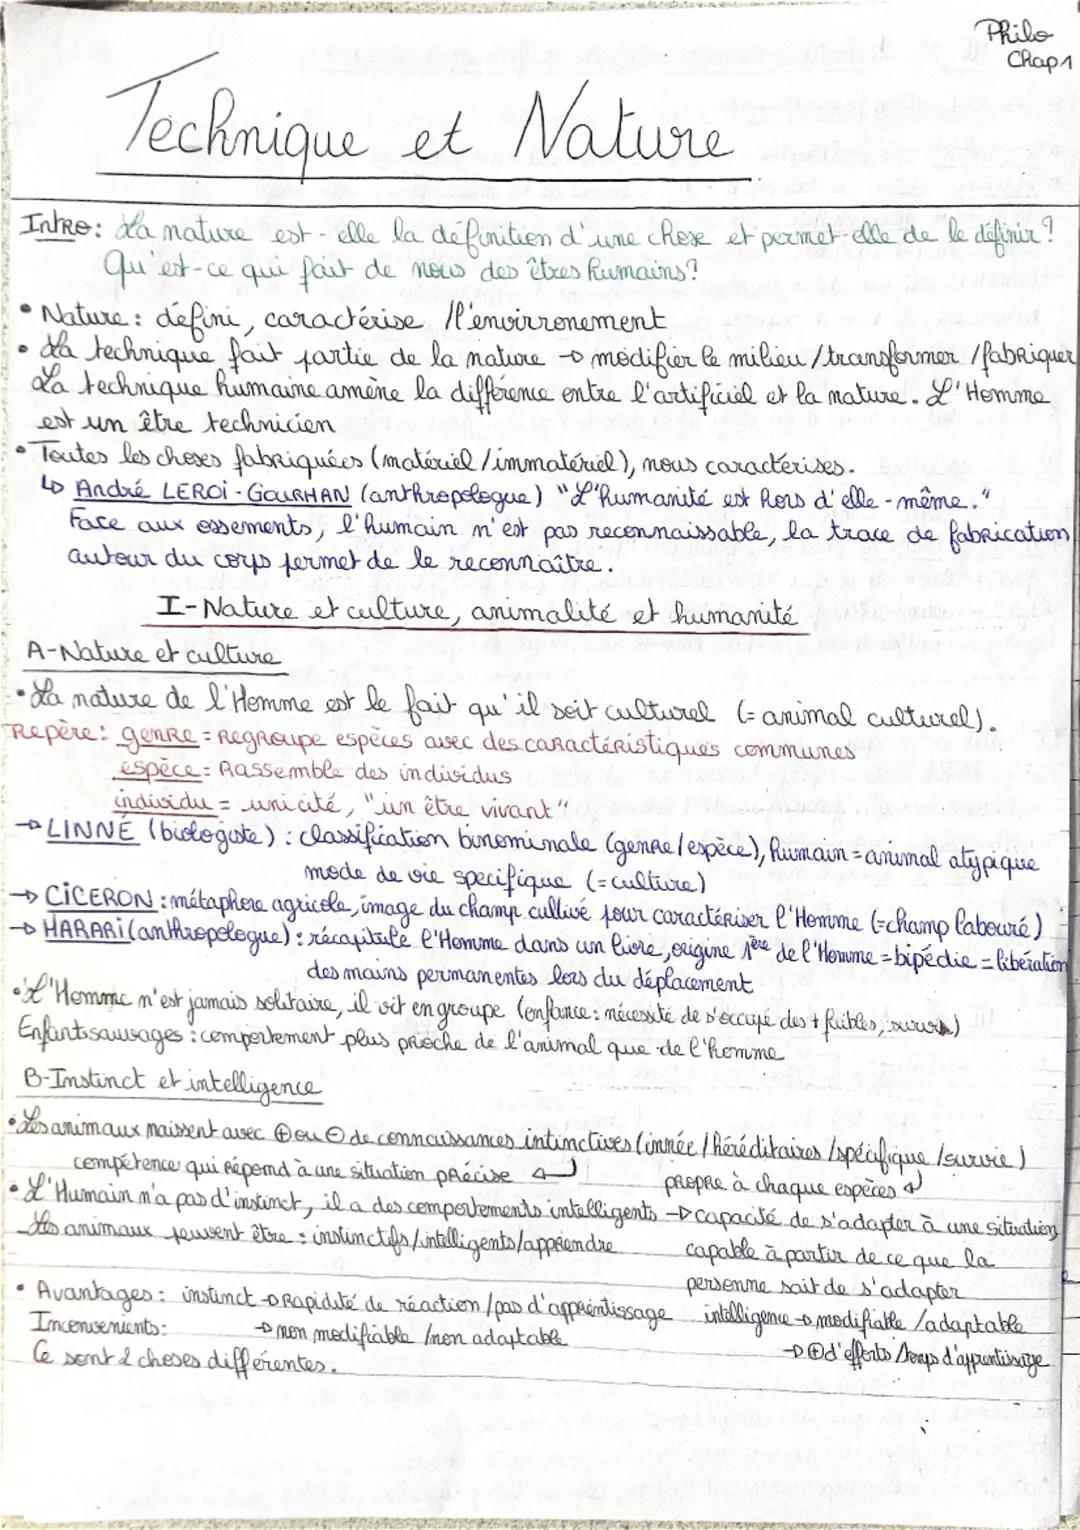 Philo
Chap 1
Technique et Nature
Intro: La nature est-elle la définition d'une chose et permet-elle de le définir?
Qu'est-ce qui fait de nous des êtres humains?
• Nature: défini, caractérise /l'envirronement
• La technique fait partie de la nature → modifier le milieu/transformer/fabriquer
La technique humaine amène la différence entre l'artificiel et la nature. L'Homme
est un être technicien
• Toutes les choses fabriquées (matériel/immatériel), nous caractérises.
↳ André LEROI-GOURHAN (anthropologue) "L'humanité est hors d'elle-même."
Face aux ossements, l'humain n'est pas reconnaissable, la trace de fabrication
autour du corps permet de le reconnaître.
I-Nature et culture, animalité et humanité
A-Nature et culture
• La nature de l'Homme est le fait qu'il soit culturel (=animal culturel).
Repère: genre = Regroupe espèces avec des caractéristiques communes
espèce = Rassemble des individus
individu = unicité, "un être vivant"
→ LINNÉ (biologiste): classification binominale (genre/espèce), humain = animal atypique
mode de vie specifique (=culture)
→ CICERON: métaphore agricole, image du champ cultivé pour caractériser l'Homme (=champ labouré)
→ HARARI (anthropologue): récapitule l'Homme dans un livre, origine 1ère de l'Homme = bipédie = libération
des mains permanentes lors du déplacement
• L'Homme n'est jamais solitaire, il vit en groupe (enfance: nécessité de s'occupé des + faibles, survie)
Enfants sauvages: comportement plus proche de l'animal que de l'homme
B-Instinct et intelligence
• Les animaux naissent avec ⊕ ou ⊖ de connaissances intinctives (innée/héréditaires/spécifique/survie)
compétence qui répond à une situation précise ↵ propre à chaque espèces ↵
• L'Humain n'a pas d'instinct, il a des comportements intelligents → capacité de s'adapter à une situation
Les animaux peuvent être: instinctifs/intelligents/apprendre capable à partir de ce que la
personne sait de s'adapter
• Avantages: instinct → Rapidité de réaction/pas d'apprentissage intelligence → modifiable/adaptable
Inconvenients: → non modifiable/non adaptable → ⊕ d'efforts/temps d'apprentissage
Ce sont 2 choses différentes.